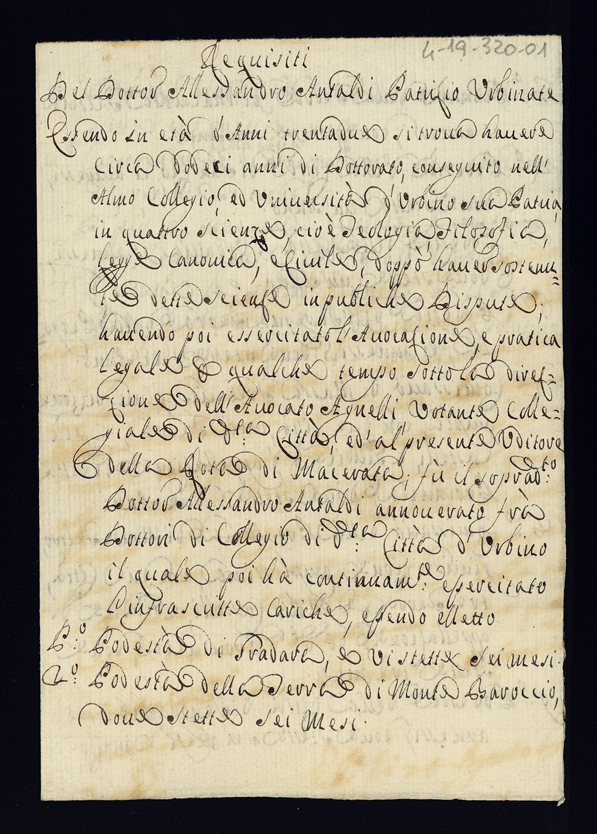 4-19-320-01
Requisiti
Del Dottor Alessandro Antaldi Patrizio Urbinate
Essendo in età d'Anni trentadue si trova havere
circa dodeci anni di Dottorato, conseguito nell'
Almo Collegio, ed Università d'Urbino sua Patria,
in quattro scienze, cioè Teologia, Filosofia,
legge Canonica, e Civile, doppo haver sostenu=
te dette scienze in publiche Dispute;
havendo poi essercitato l'Avocazione, e pratica
legale qualche tempo sotto la direz=
zione dell'Avocato Agnelli Votante Colle=
giale di d.ta Città, ed al presente Uditore
della Rota di Macerata, fù il soprad.to
Dottor Alessandro Antaldi annoverato frà
Dottori di Collegio di d.ta Città d'Urbino
il quale poi hà continuam.te essercitato
l'infrascritte Cariche, essendo elletto
P.o Podestà di Fradara, e vi stette sei mesi.
2.o Podestà della Terra di Monte Baroccio,
dove stette sei Mesi.